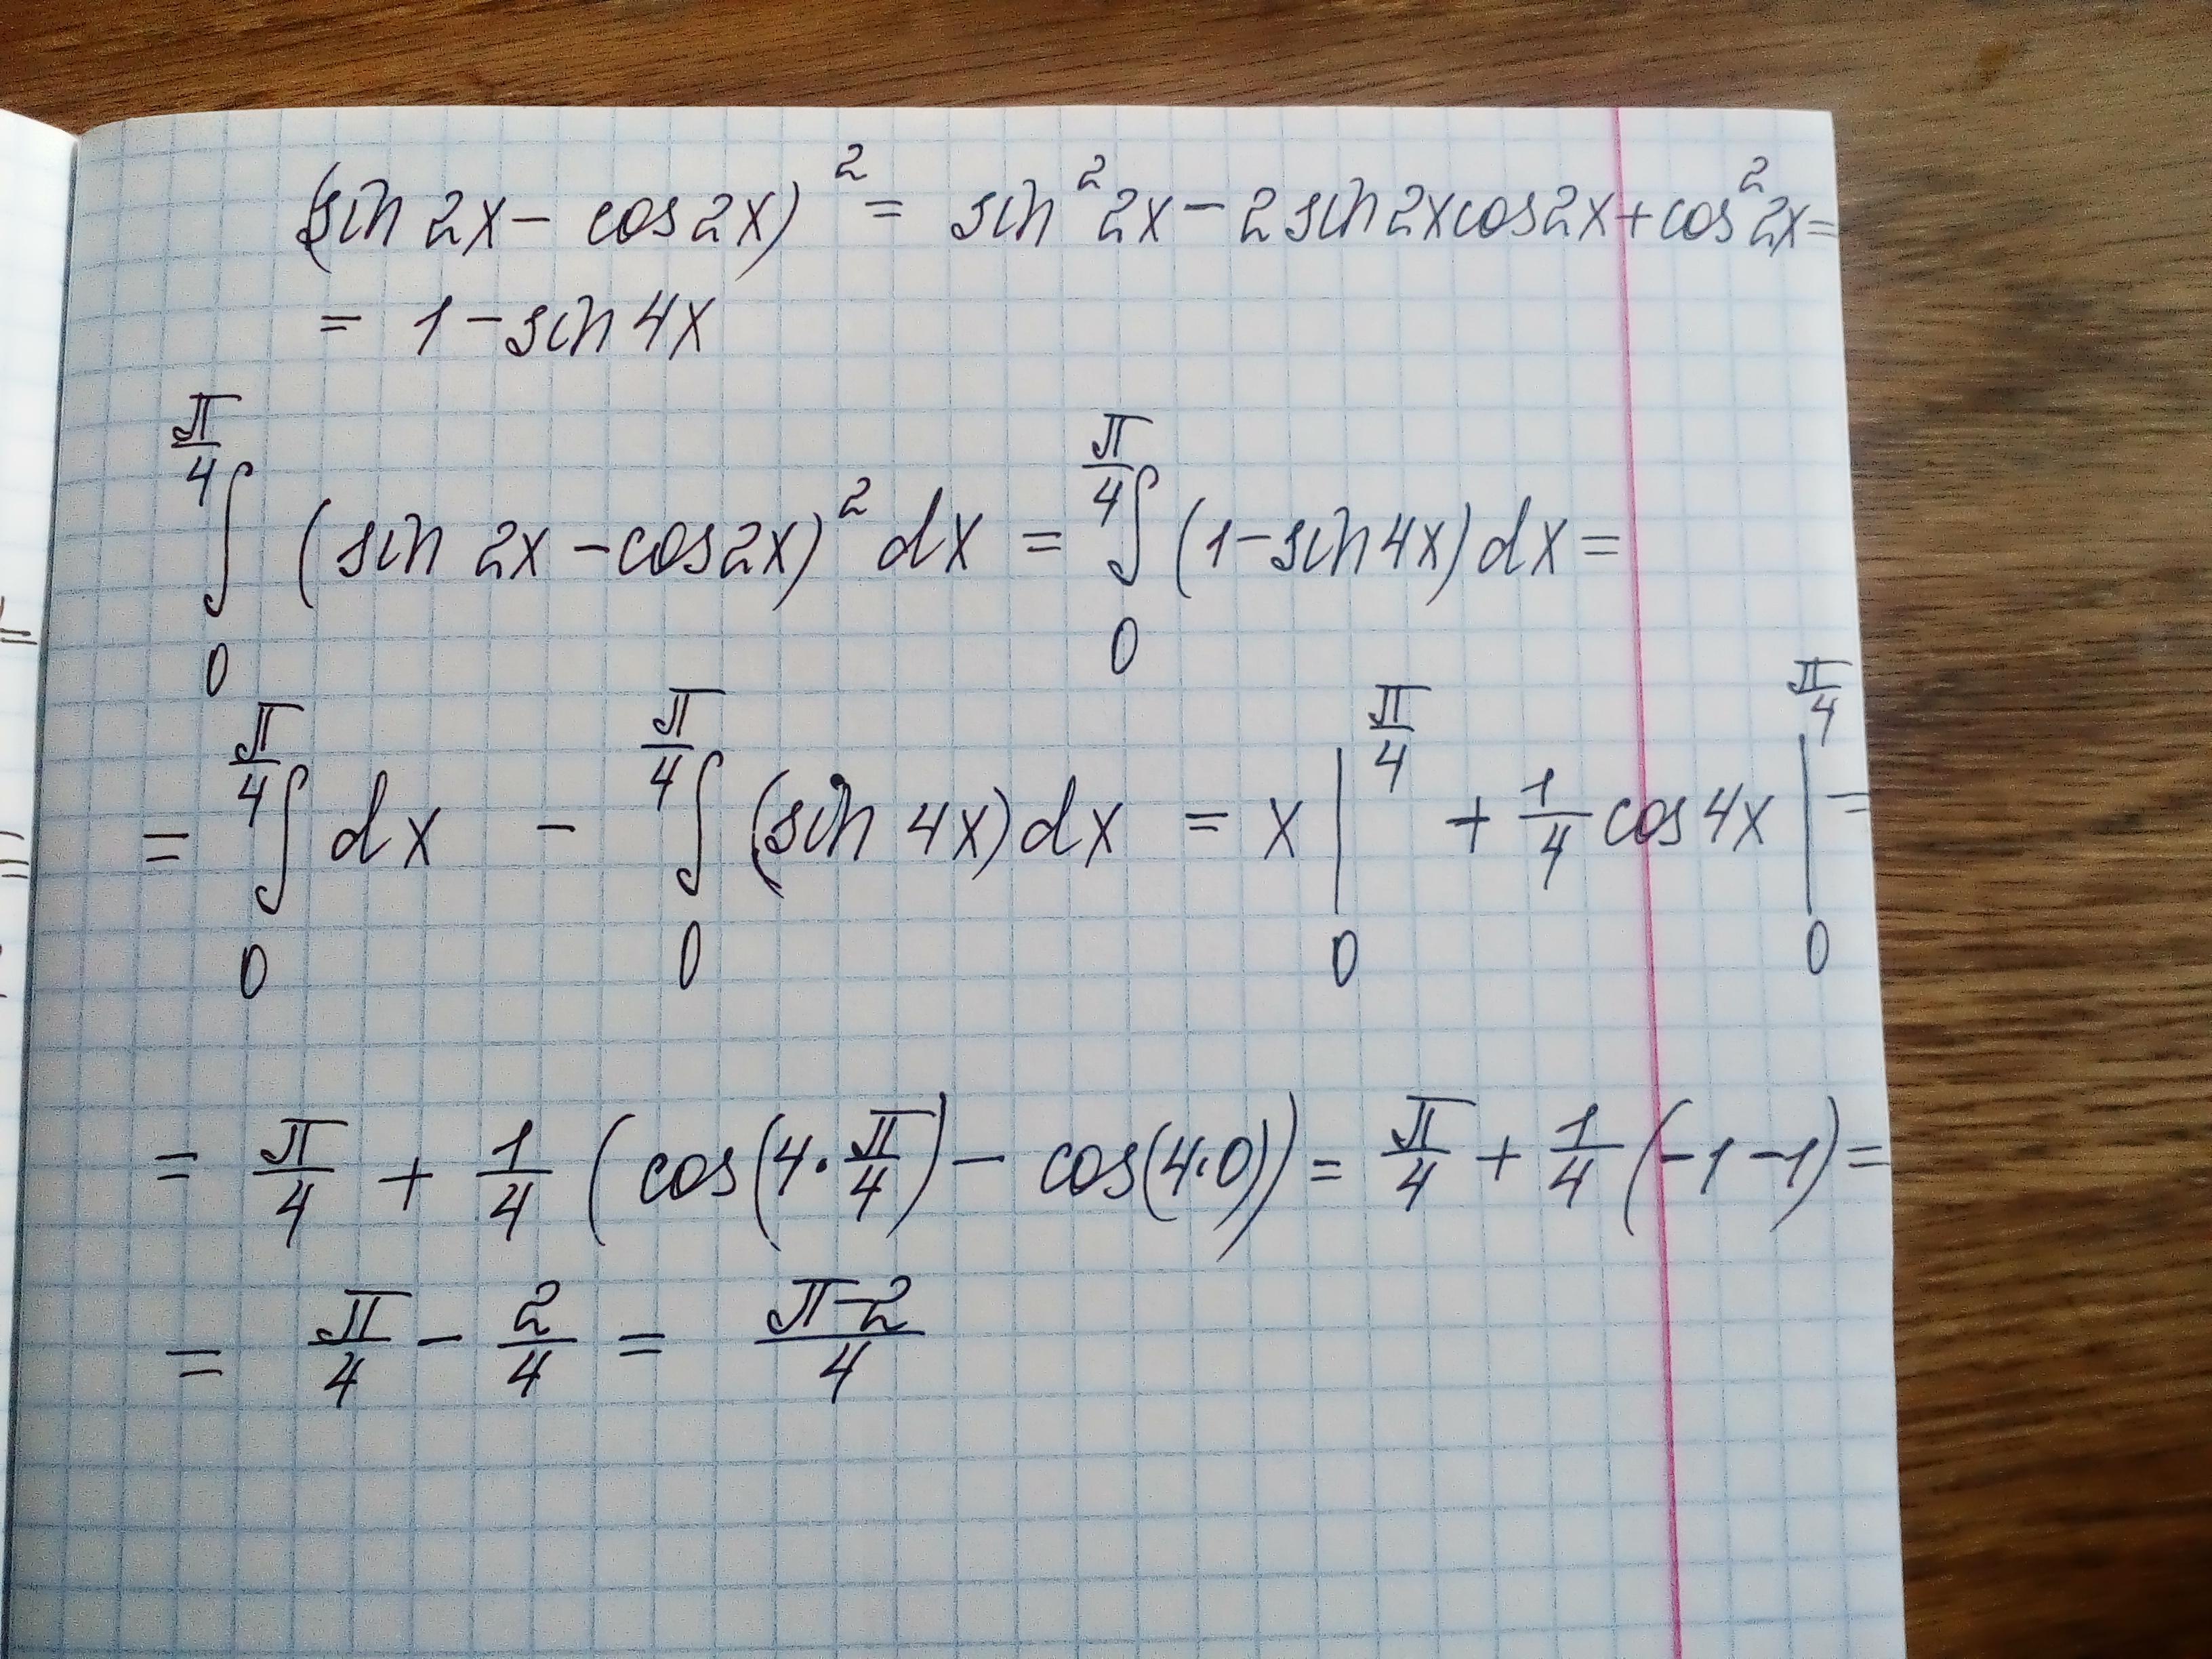 (sin 2x − cos 2x)² = sin² 2x − 2 sin 2x cos 2x + cos² 2x =
= 1 − sin 4x
∫₀^(π/4) (sin 2x − cos 2x)² dx = ∫₀^(π/4) (1 − sin 4x) dx =
= ∫₀^(π/4) dx − ∫₀^(π/4) (sin 4x) dx = x |₀^(π/4) + 1/4 cos 4x |₀^(π/4) =
= π/4 + 1/4 (cos(4 · π/4) − cos(4 · 0)) = π/4 + 1/4 (−1 − 1) =
= π/4 − 2/4 = (π − 2)/4